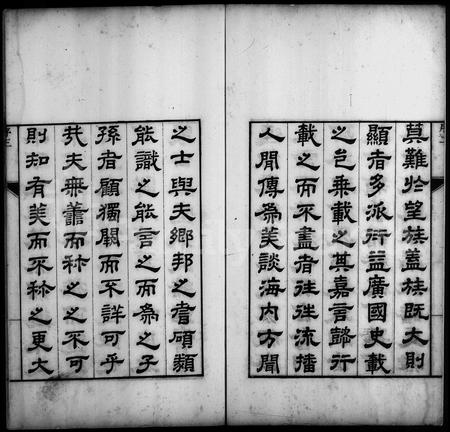 莫難於望族蓋族既大則
顯者多派衍益廣國史載
之邑乗載之其嘉言懿行
載之而不盡者往往流播
人間傳為美談海内方聞
之士與夫鄉邦之耆碩類
能識之能言之而為之子
孫者顧獨闕而不詳可乎
㢤夫無善而称之之不可
則知有美而不称之更大